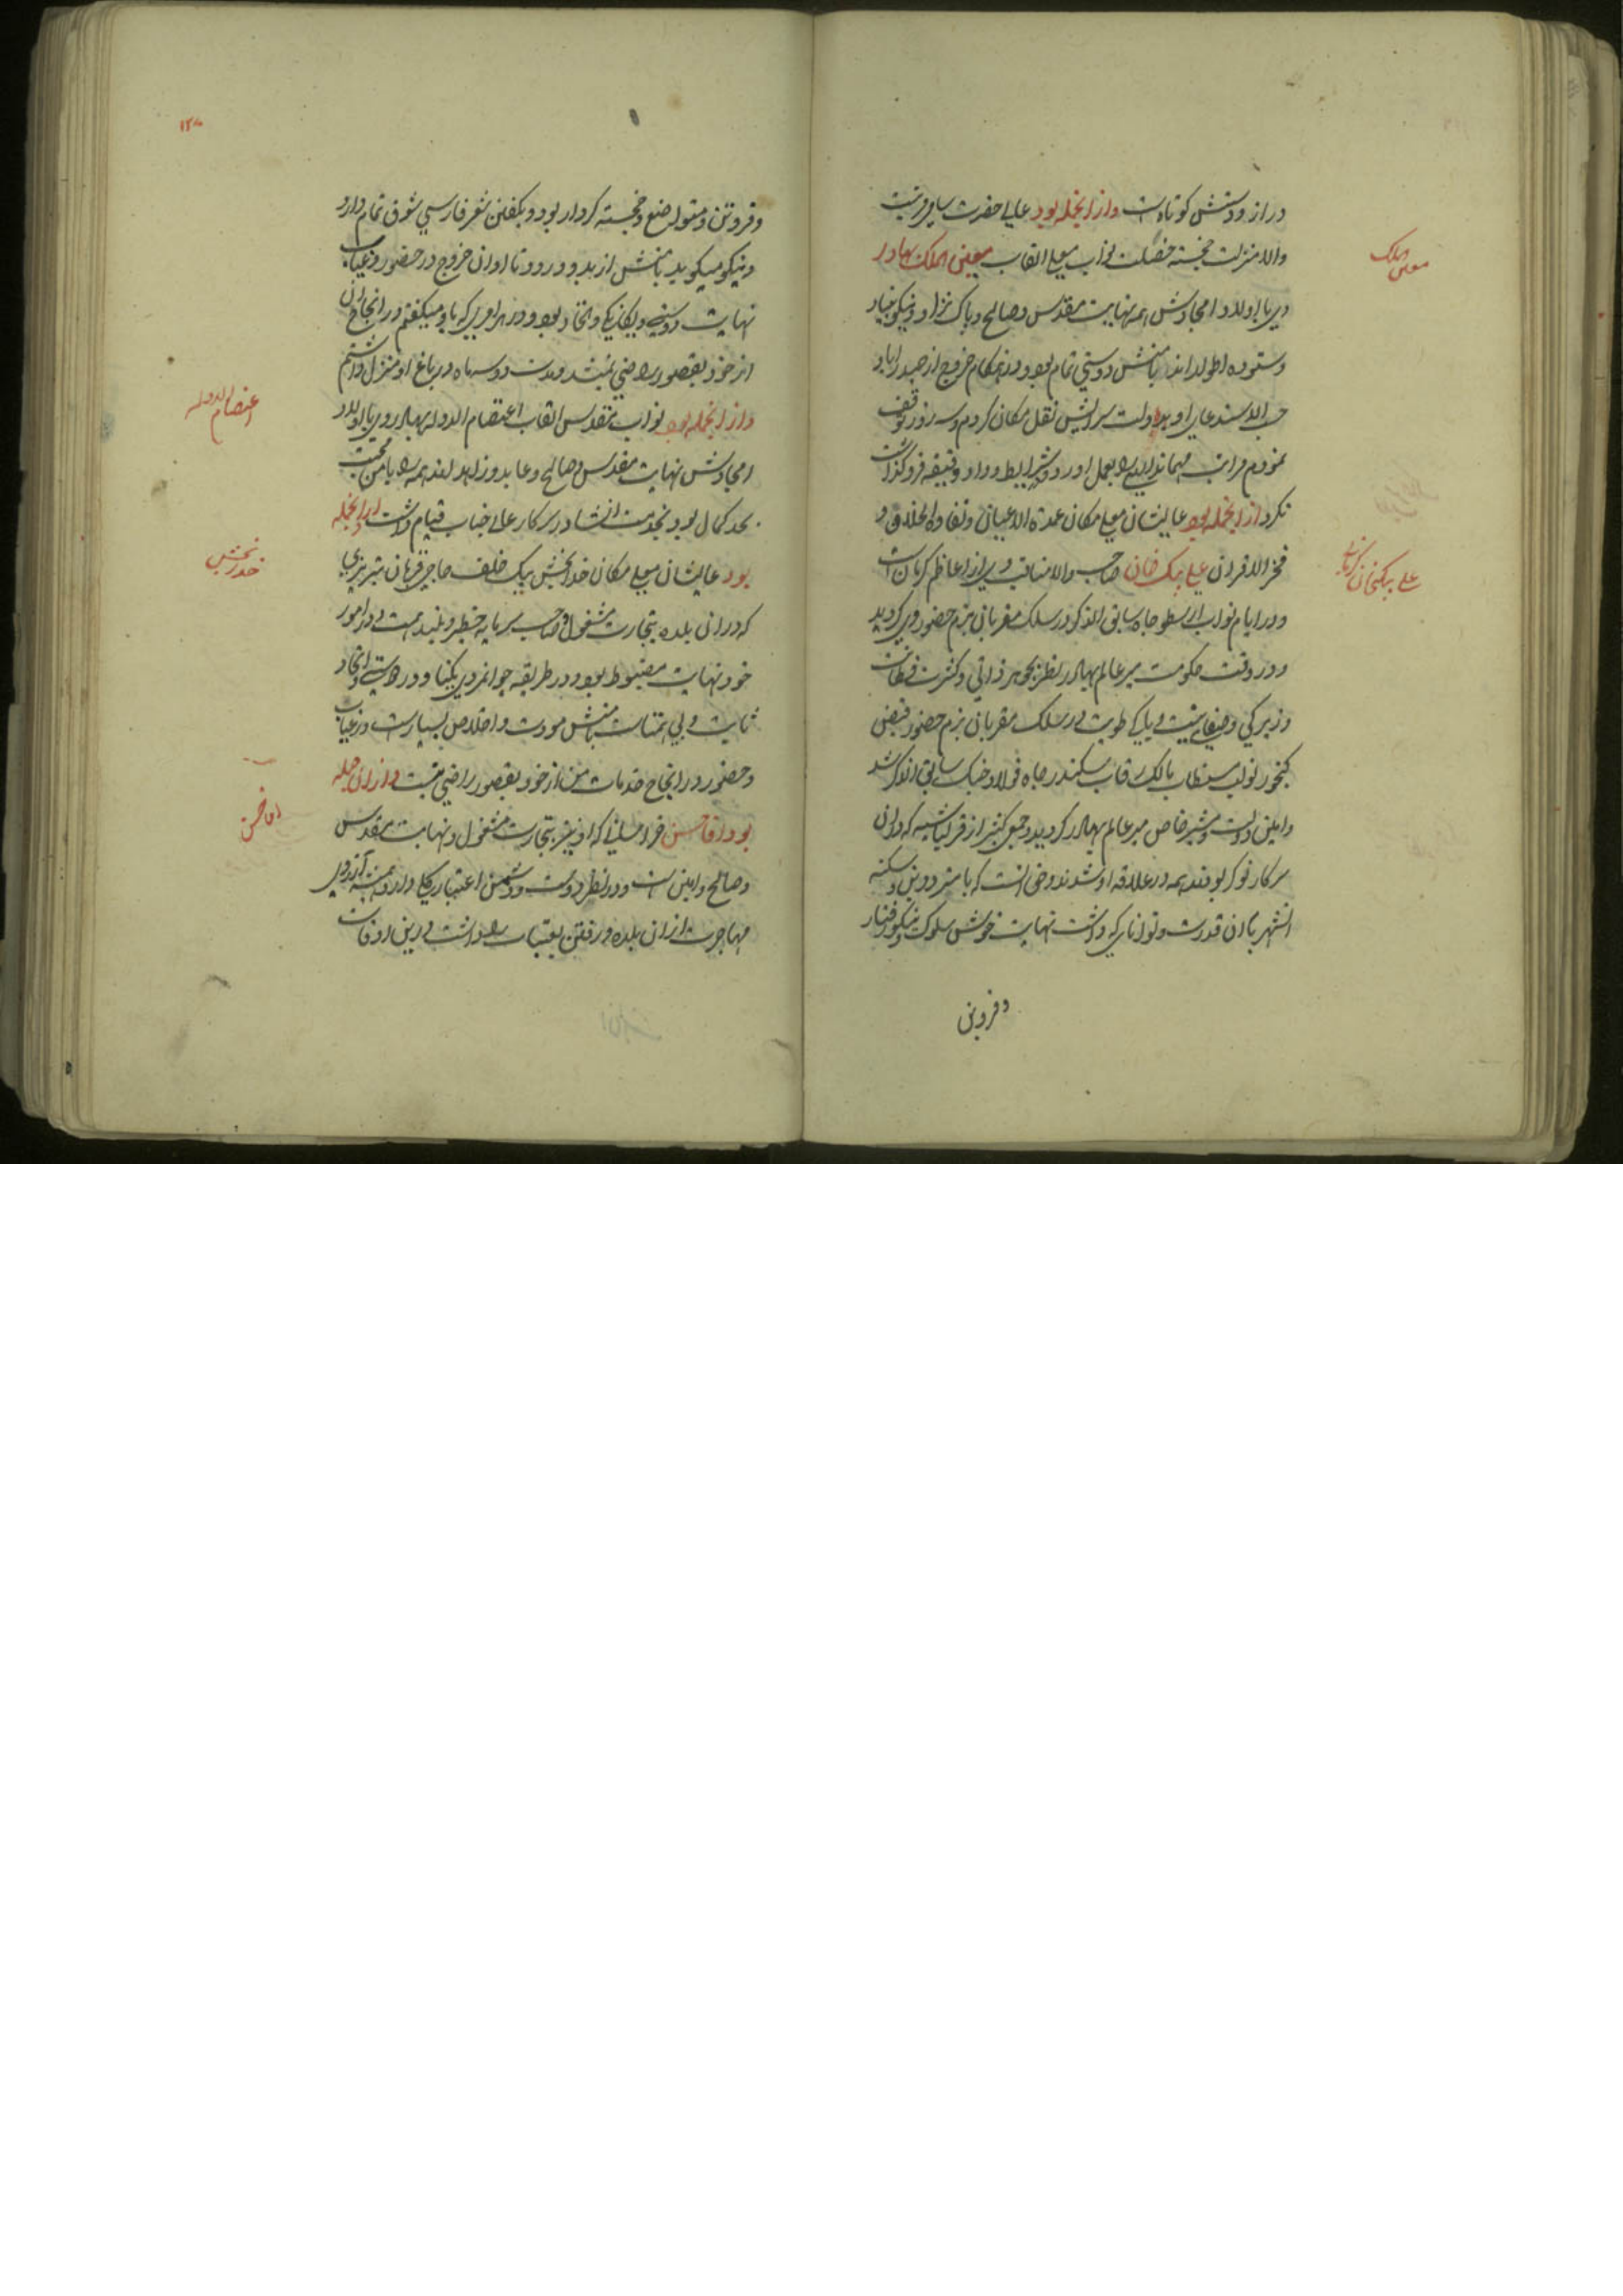 دراز و دستش کوتاه است وازانجمله بود عالی حضرت
والا منزلت خجسته خصلت نواب معلی القاب معین الملک بهادر
معین الملک
وی با اولاد و امجادش همه نهایت مقدس و صالح و پاک نژاد و نیکو بنیاد
و ستوده اطوار اند با منش دوستی تمام بود و در هنگام خروج از حیدراباد
حسب الاستدعای او بدولت سرایش نقل مکان کردم و سه روز توقف
نمودم مراتب مهمانداری را بعمل اورد و شرایط وداد و دقیقه فروگذاشت
نکرد ازانجمله بود عالیشان معلی مکان عمدة الاعیان و نقاوه اخلاق و
فخر الاقران علی بیک خان صاحب والا مناقب وی از اعاظم کرمان است
علی بیکخان کرمانی
و در ایام نواب ارسطو جاه سابق الذکر در سلک مقربان بزم حضور وی گردید
و در وقت حکومت میر عالم بهادر نظر بجوهر ذاتی و کثرت فطانت
و زیرکی و صفای نیت و پاکی طویت در سلک مقربان بزم حضور فیض
گنجور نواب مستطاب مالک رقاب سکندر جاه فولاد جنگ سابق الذکر شد
و امین دولت و مشیر خاص میر عالم بهادر گردید و جمعی کثیر از قزلباشیه که در ان
سرکار نوکر بودند همه در علاقه او شدند و حق انست که با مترددین و سکنه
انشهر با ان قدرت و توانای که داشت نهایت خوش سلوک و نیکو رفتار
و فروتن
۱۲۸
و فروتن و ستوده صنع و خجسته کردار بود و بگفتن شعر فارسی شوق تمام دارد
و نیکو میگوید با منش از بدو ورود تا اوان خروج در حضور و غیاب
نهایت دوستی و یگانگی و اتحاد بود و در هر امری که باو میگفتم در انجاح ان
از خود بقصور راضی نمیشد و مدت دو سه ماه در باغ او منزل داشتم
وازانجمله بود نواب مقدس القاب اعتصام الدوله بهادر وی با اولاد
اعتصام الدوله
امجادش نهایت مقدس و صالح و عابد و زاهد اند همه را با من محبت
بحد کمال بود بخدمت انشا در سرکار عالی جناب قیام داشت وازانجمله
بود عالیشان معلی مکان خدابخش بیک خلف حاجی قربان تبریزی
خدابخش
که در ان بلده بتجارت مشغول و صاحب سرمایه خطیر و بلند همت و در امور
خود نهایت مضبوط بود و در طریقه جوانمردی یکتا و در دوستی و اتحاد
ثابت و بی همتاست با منش مودت و اخلاص بسیار است در غیاب
و حضور در انجاح خدمات من از خود بقصور راضی نیست وازان جمله
بود اقا حسن خراسانی که او نیز بتجارت مشغول و نهایت مقدس
اقا حسن
و صالح و امین است و در نظر دوست و دشمن اعتبار کلی دارد همیشه آرزوی
مهاجرت از ان بلده و رفتن بعتبات را داشت در این اوقات